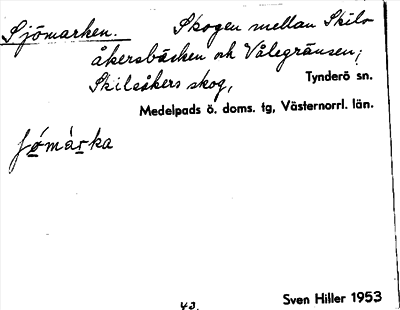 Sjömarken. Skogen mellan Skils-
åkersbäcken och Vålegränsen;
Skilsåkers skog, Tynderö sn.
Medelpads ö. doms. tg, Västernorrl. län.
ʃǿmàrka
Sven Hiller 1953
43.